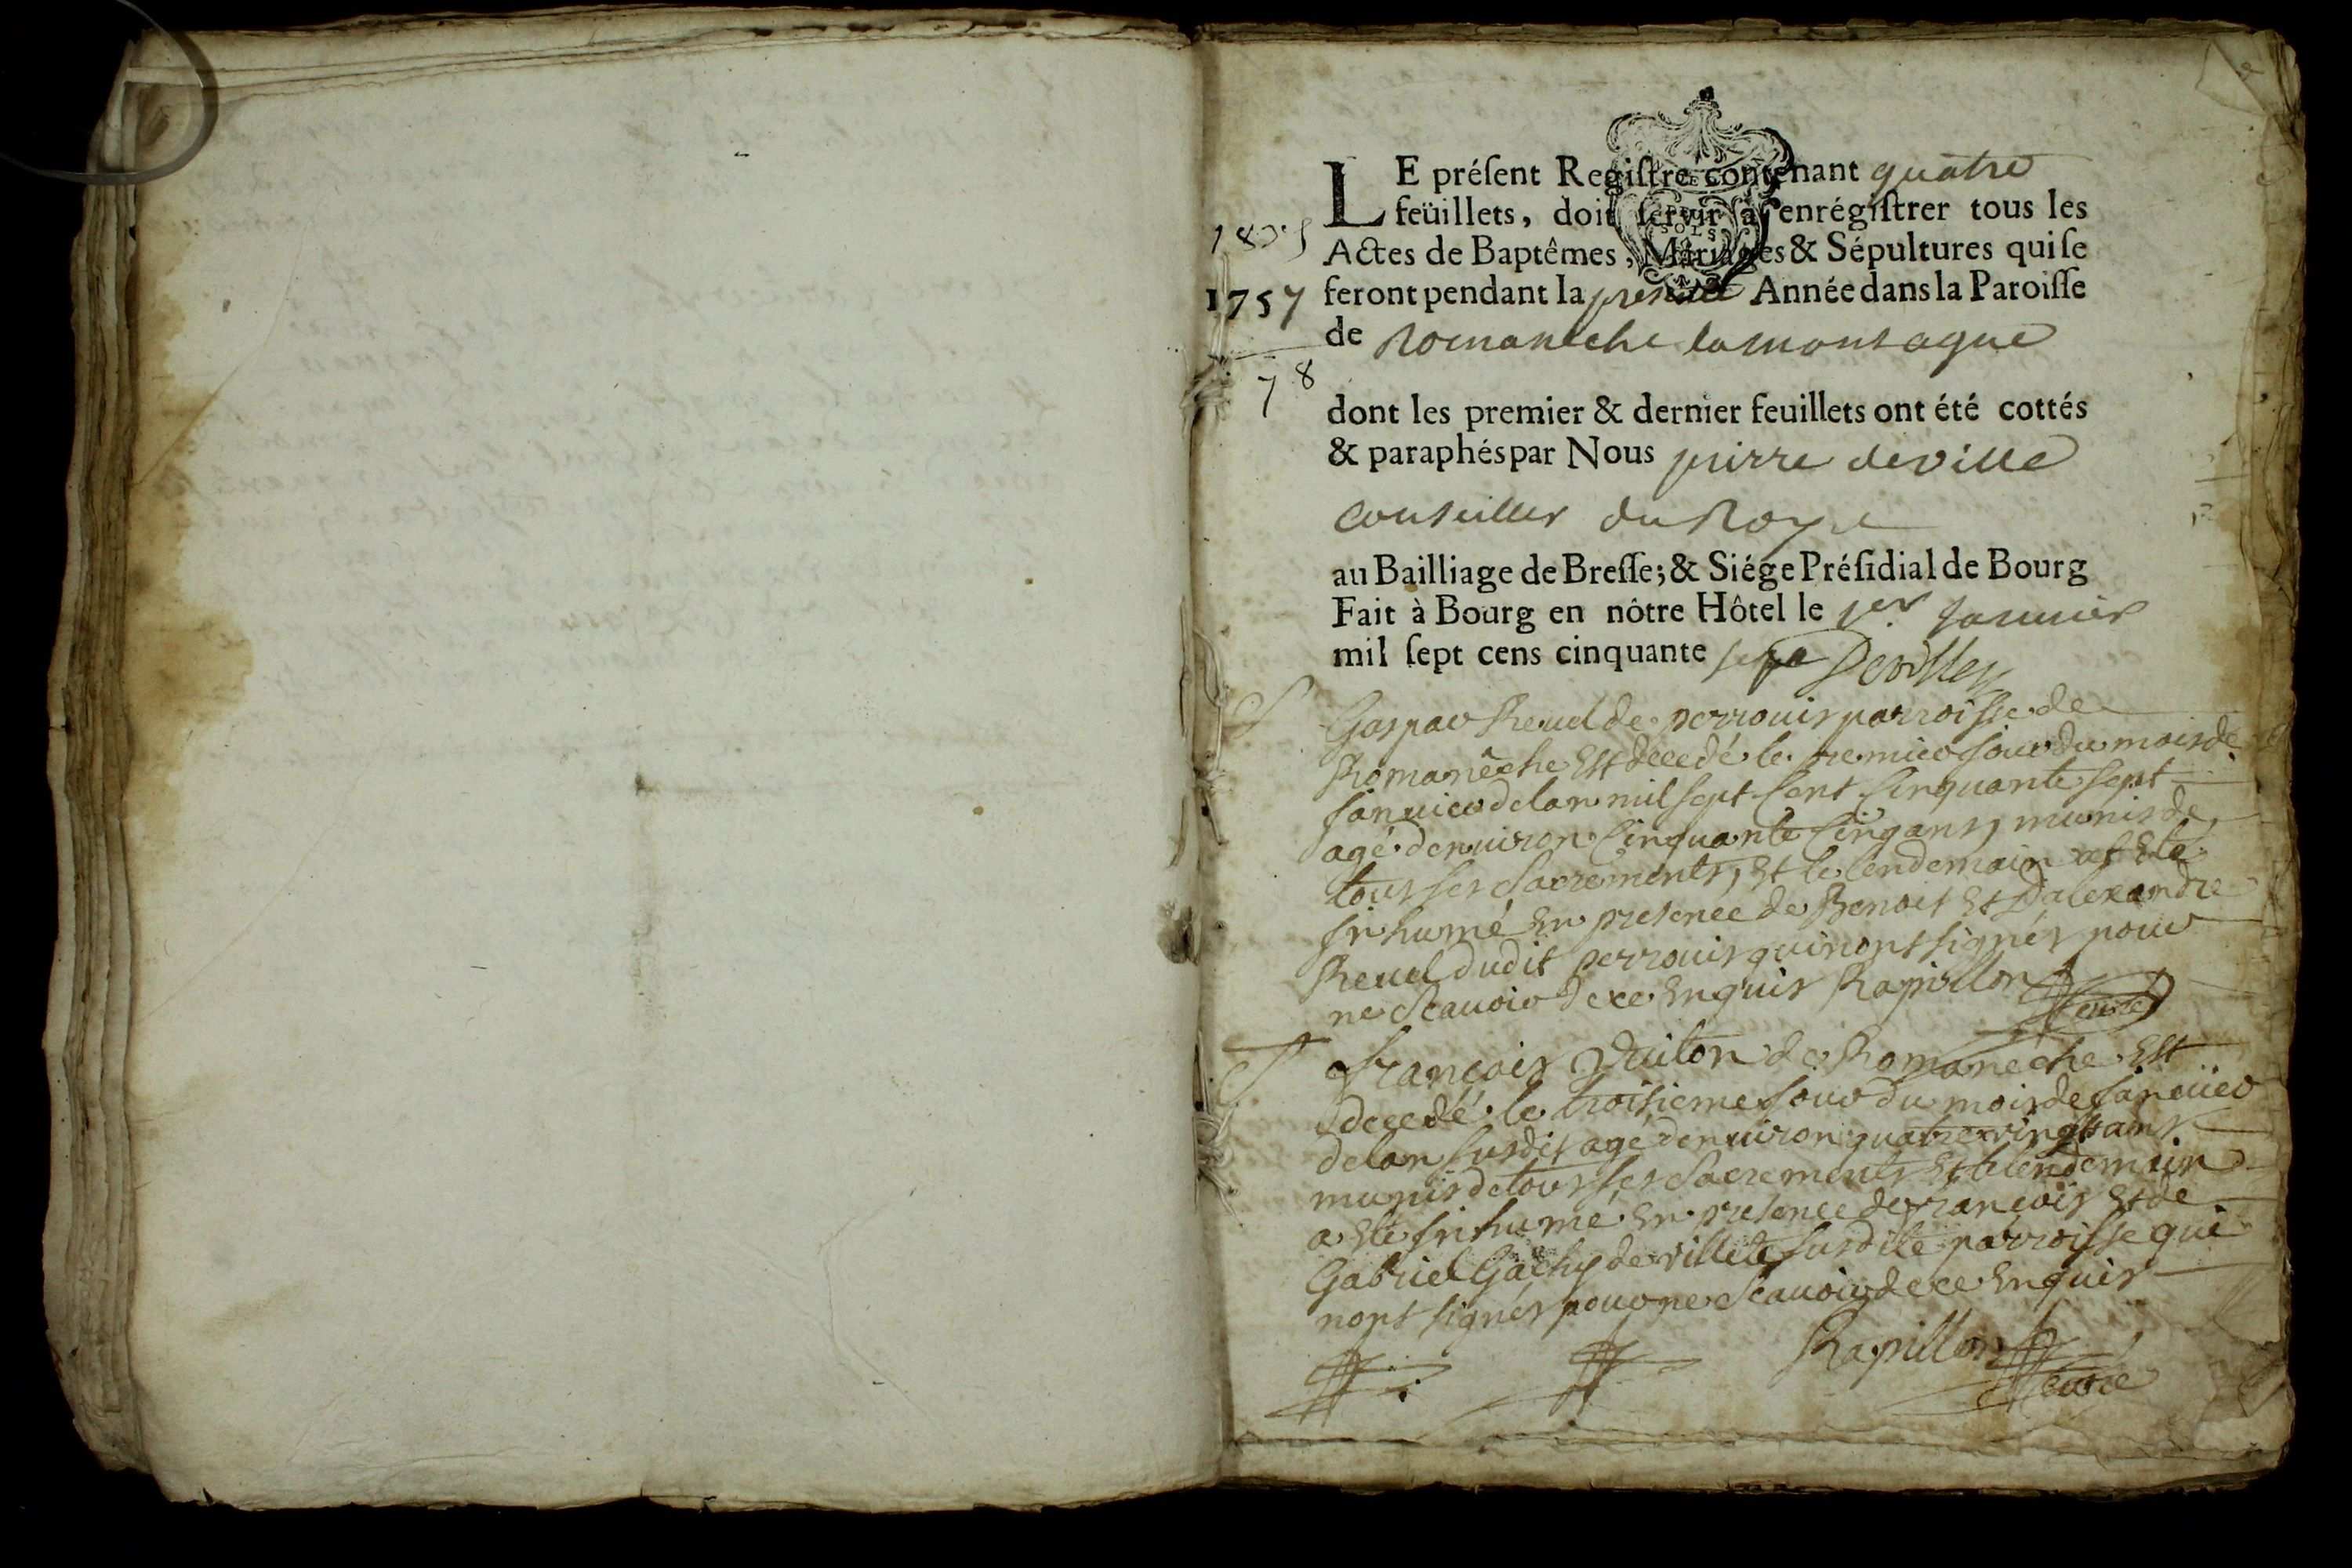 LE préſent Regiſtre contenant quatre
feüillets, doit ſervir à enrégiſtrer tous les
Actes de Baptêmes, Mariages & Sépultures qui ſe
1757
feront pendant la presente Année dans la Paroiſſe
de Romaneche lamontagne
78
dont les premier & dernier feuillets ont été cottés
& paraphés par Nous pierre deville
Conseiller du Roy
au Bailliage de Breſſe; & Siége Préſidial de Bourg
Fait à Bourg en nôtre Hôtel le 1er Janvier
mil ſept cens cinquante sept Deville
Gaspar Reuel de perrouis parroisse de
Romanêche Est decedé le premier Jour du mois de
Januier de lan mil sept Cent Cinquante sept
agé denuiron Cinquante Cinq ans, munis de
tous ses Sacrements, Et le lendemain at Eté
Inhumé En presence de Benoit Et Dalexandre
Reuel dudit perrouis qui nont signés pour
ne Scauoir de ce Enquis Rapillon
Curé
François Vuiton de Romanêche Est
decedé le troisieme Jour du mois de Januier
de lan susdit agé denuiron quatre vingt ans
munis de tous ses Sacrements Et le lendemain
a Eté Inhumé En presence de françois Et de
Gabriel Gachy de villete susdite parroisse qui
nont signés pour ne Scauoir de ce Enquis
Rapillon
Curé